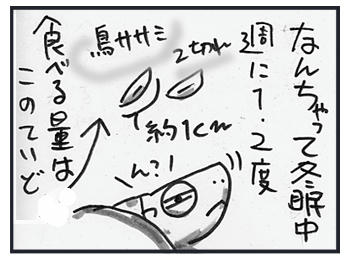 なんちゃって冬眠中
週に1.2度
鳥ササミ
2切れ
約1cm
食べる量は
このていど
ん?!